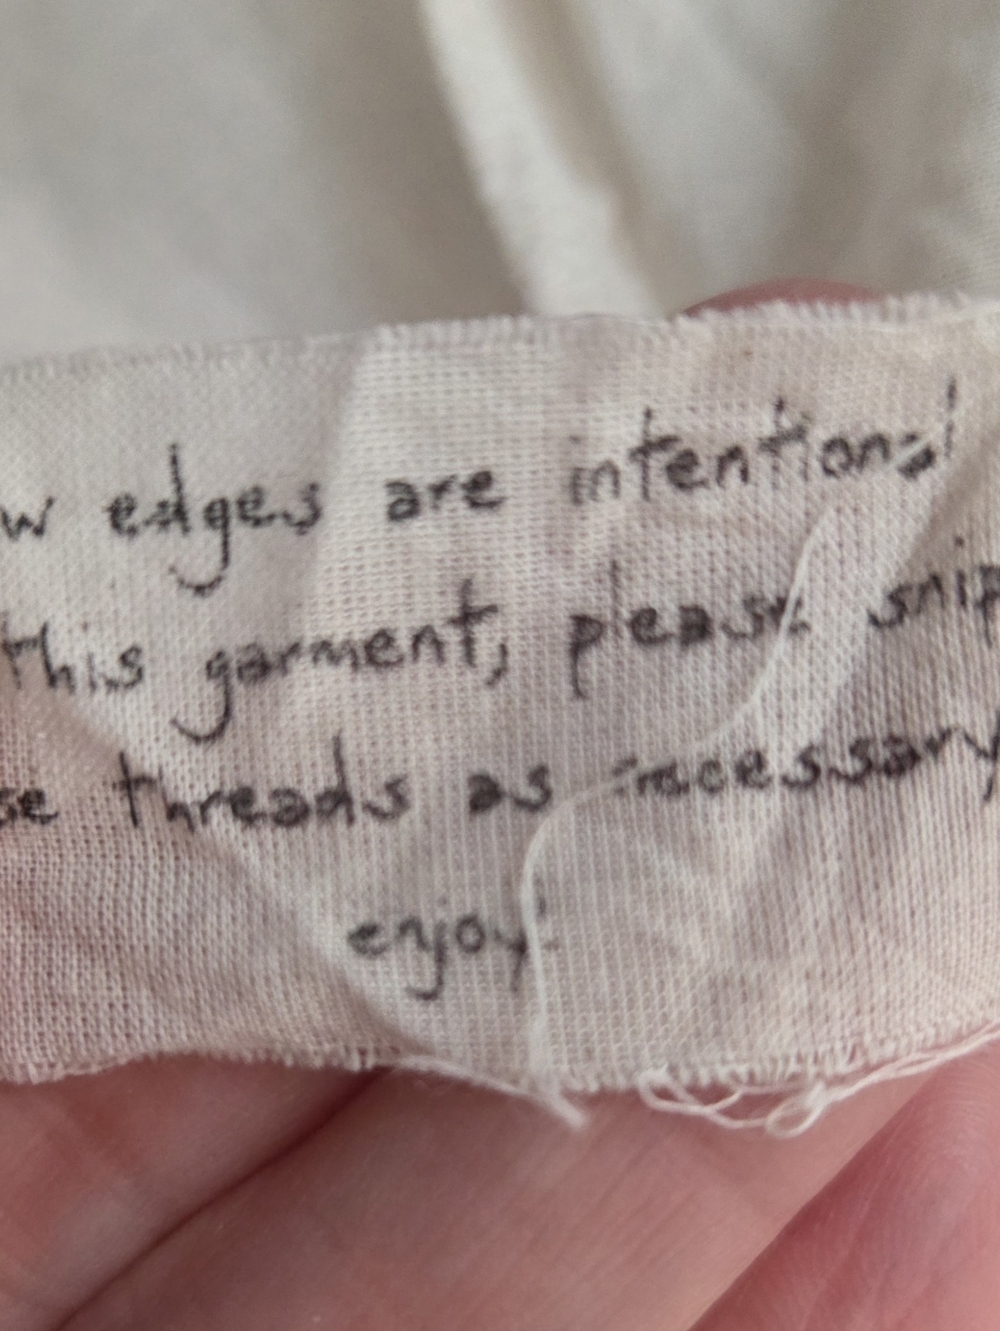 w edges are intentional
this garment, please snip
se threads as necessary
enjoy!